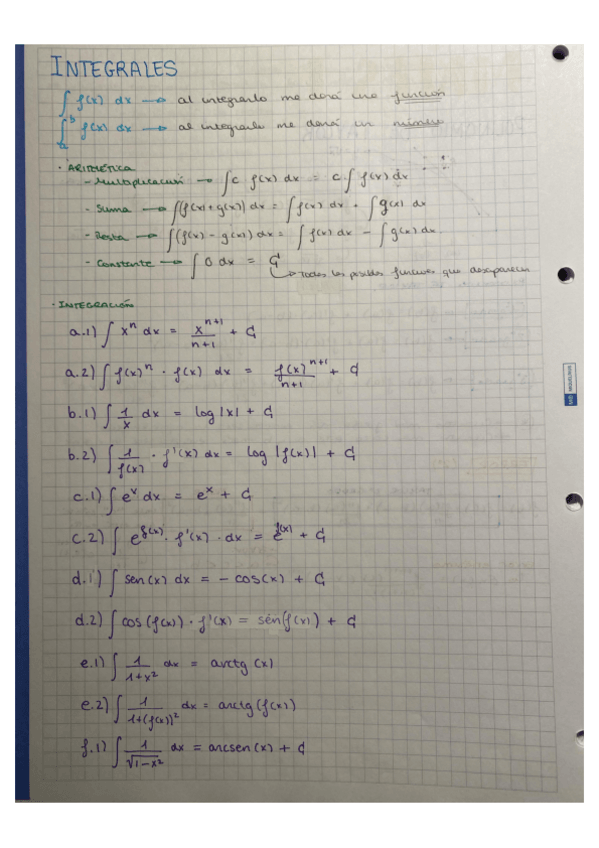 INTEGRALES
∫ f(x) dx → al integrarlo me dará una función
∫ₐᵇ f(x) dx → al integrarlo me dará un número
· ARITMÉTICA
- Multiplicación → ∫c f(x) dx = c·∫f(x) dx
- Suma → ∫(f(x)+g(x)) dx = ∫f(x) dx + ∫g(x) dx
- Resta → ∫(f(x) - g(x)) dx = ∫f(x) dx - ∫g(x) dx.
- Constante → ∫0 dx = C
↳ Todas las posibles funciones que desaparecen
· INTEGRACIÓN
a.1) ∫ xⁿ dx = xⁿ⁺¹/(n+1) + C
a.2) ∫ f(x)ⁿ · f(x) dx = f(x)ⁿ⁺¹/(n+1) + C
b.1) ∫ 1/x dx = log|x| + C
b.2) ∫ 1/f(x) · f'(x) dx = log|f(x)| + C
c.1) ∫ eˣ dx = eˣ + C
c.2) ∫ e^f(x) · f'(x) · dx = e^f(x) + C
d.1) ∫ sen(x) dx = - cos(x) + C
d.2) ∫ cos(f(x)) · f'(x) = sen(f(x)) + C
e.1) ∫ 1/(1+x²) dx = arctg (x)
e.2) ∫ 1/(1+(f(x))²) dx = arctg(f(x))
f.1) ∫ 1/√(1-x²) dx = arcsen(x) + C